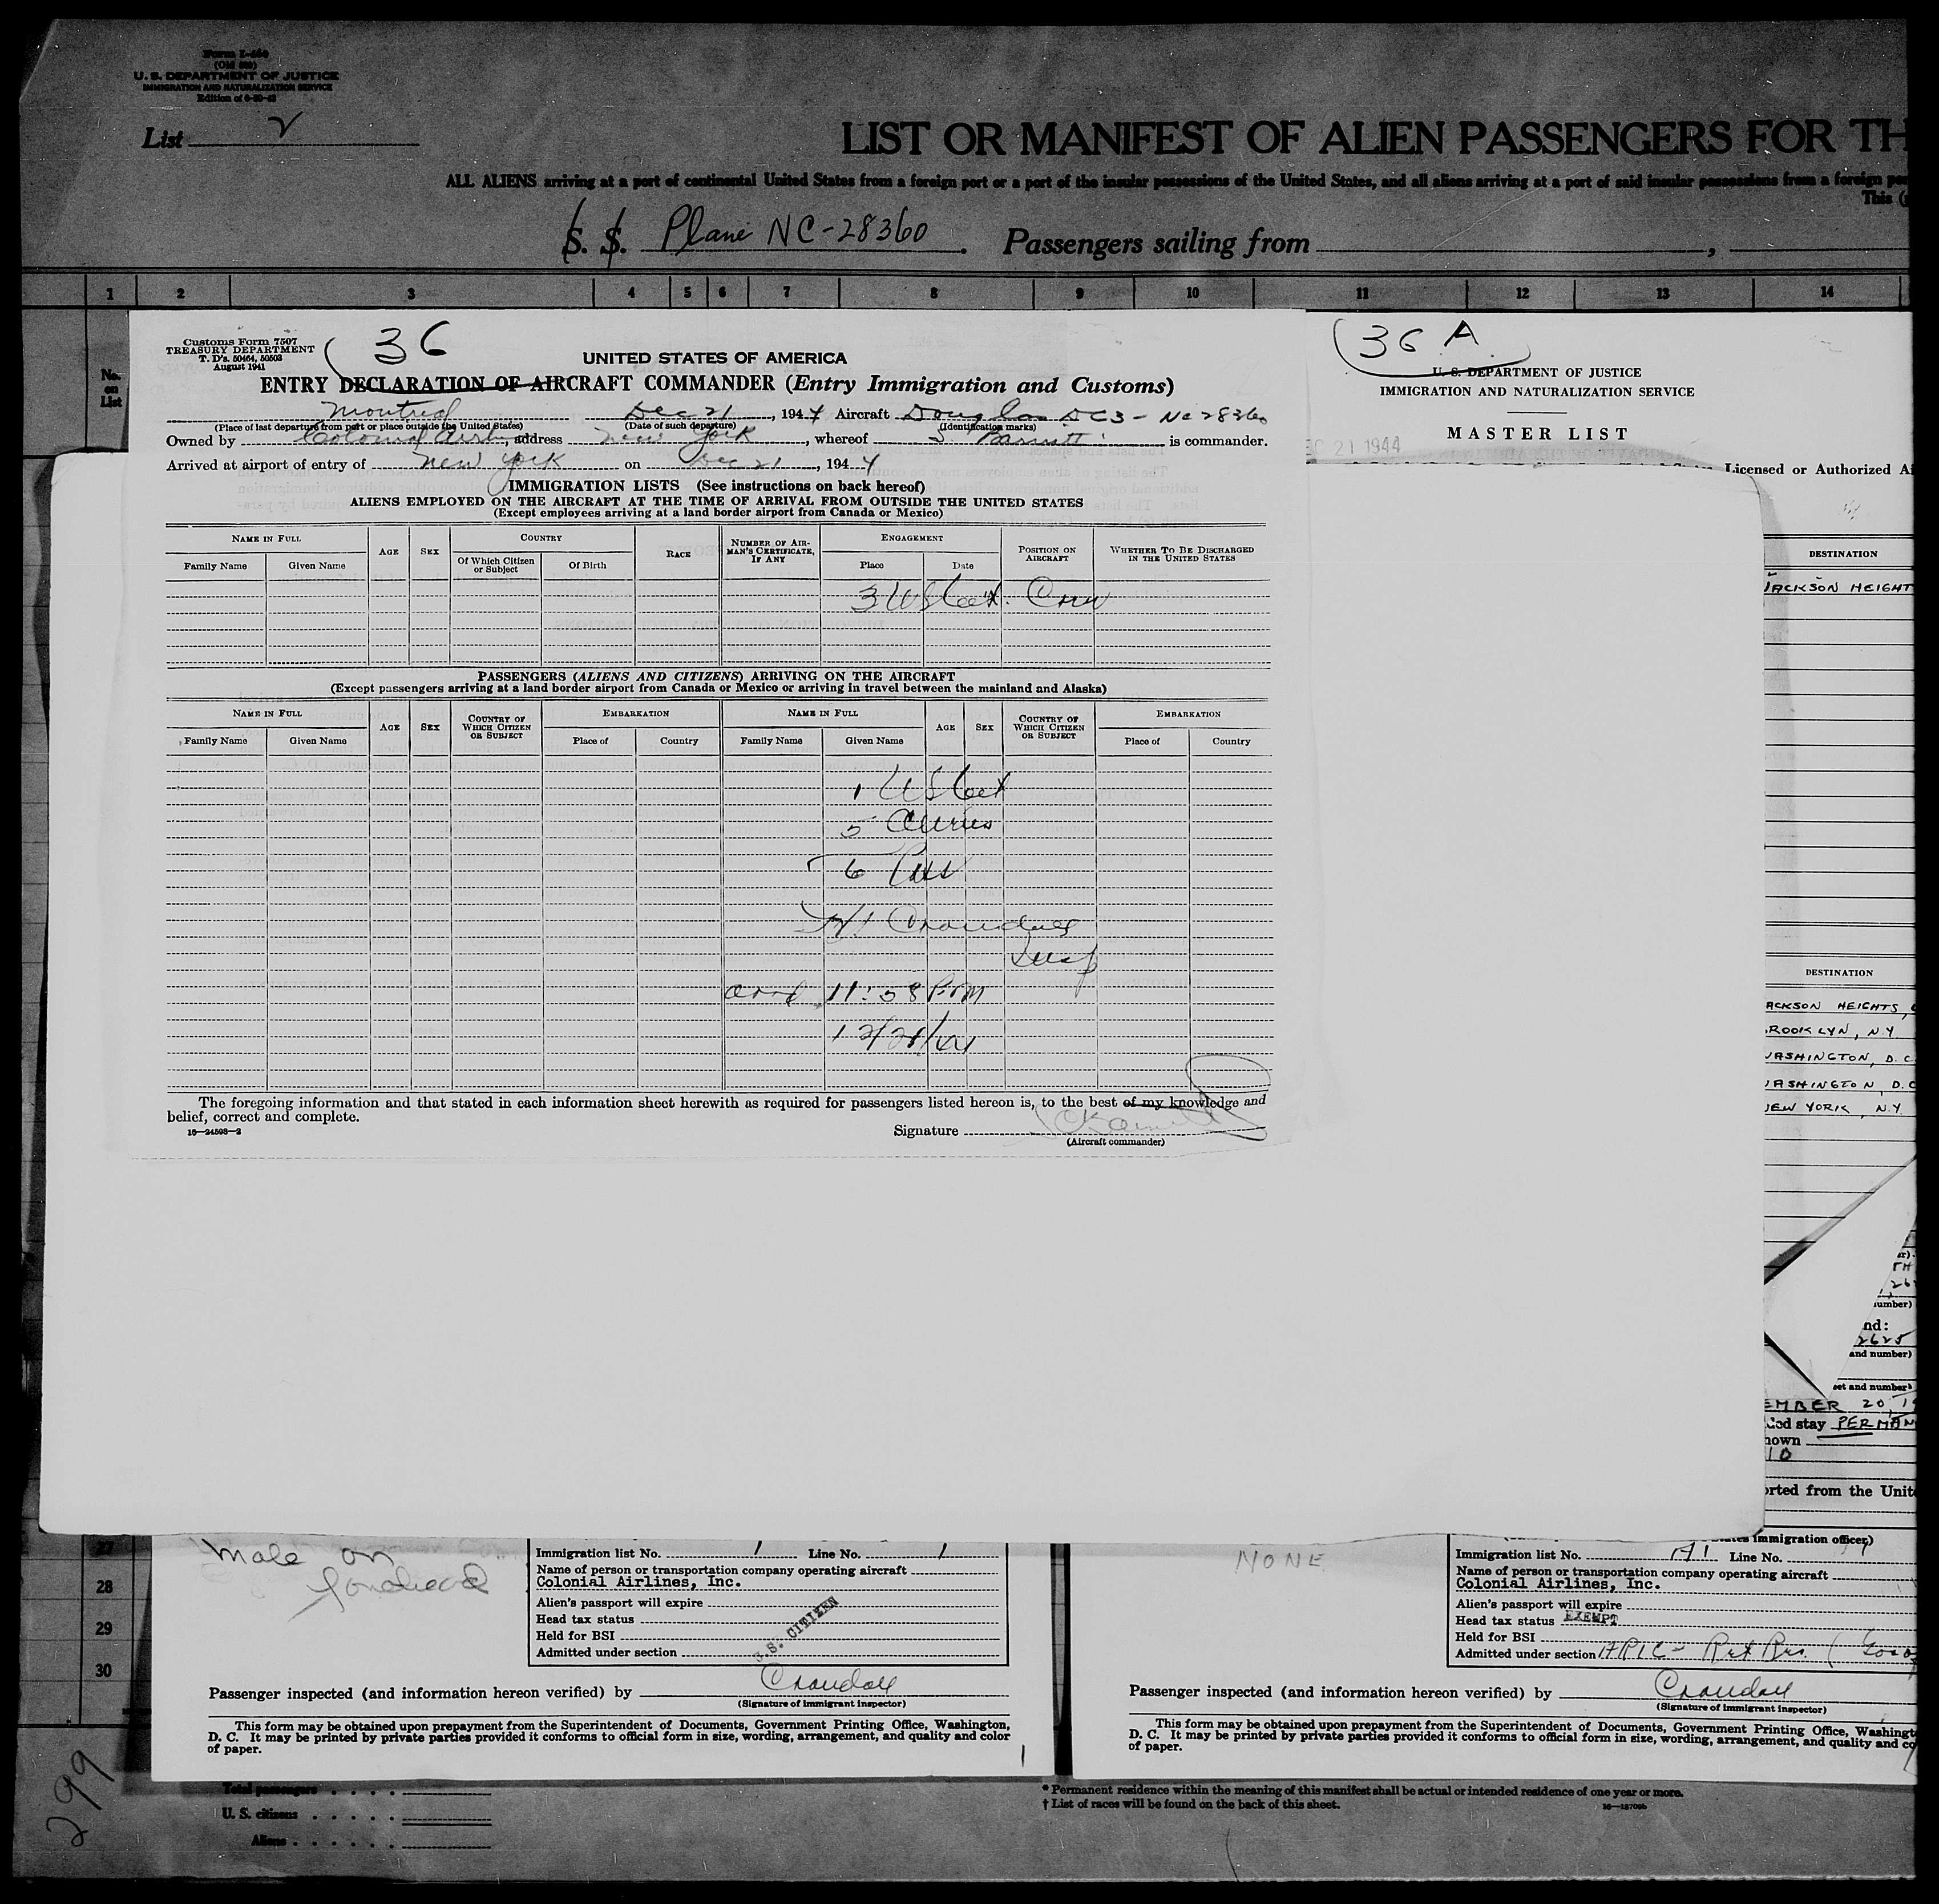 Form I-460
(Old 500)
U. S. DEPARTMENT OF JUSTICE
IMMIGRATION AND NATURALIZATION SERVICE
List 2
LIST OR MANIFEST OF ALIEN PASSENGERS FOR TH
ALL ALIENS arriving at a port of continental United States from a foreign port or a port of the insular possessions of the United States, and all aliens arriving at a port of said insular possessions from a foreign por
This (
S. S. Plane NC-28360. Passengers sailing from ,
1 2 3 4 5 6 7 8 9 10 11 12 13 14
No. on List
Customs Form 7507
TREASURY DEPARTMENT
T. D's. 50464, 50503
August 1941
36
UNITED STATES OF AMERICA
ENTRY DECLARATION OF AIRCRAFT COMMANDER (Entry Immigration and Customs)
Montreal Dec 21, 1944 Aircraft Douglas DC3 - NC 28360
(Place of last departure from port or place outside the United States) (Date of such departure) (Identification marks)
Owned by Colonial Airlines, address New York, whereof S. Barnett is commander.
Arrived at airport of entry of New York on Dec 21, 1944
IMMIGRATION LISTS (See instructions on back hereof)
ALIENS EMPLOYED ON THE AIRCRAFT AT THE TIME OF ARRIVAL FROM OUTSIDE THE UNITED STATES
(Except employees arriving at a land border airport from Canada or Mexico)
NAME IN FULL AGE SEX COUNTRY RACE NUMBER OF AIRMAN'S CERTIFICATE, IF ANY ENGAGEMENT POSITION ON AIRCRAFT WHETHER TO BE DISCHARGED IN THE UNITED STATES
Family Name Given Name Of Which Citizen or Subject Of Birth Place Date
3 US Cit. Crew
PASSENGERS (ALIENS AND CITIZENS) ARRIVING ON THE AIRCRAFT
(Except passengers arriving at a land border airport from Canada or Mexico or arriving in travel between the mainland and Alaska)
NAME IN FULL AGE SEX COUNTRY OF WHICH CITIZEN OR SUBJECT EMBARKATION NAME IN FULL AGE SEX COUNTRY OF WHICH CITIZEN OR SUBJECT EMBARKATION
Family Name Given Name Place of Country Family Name Given Name Place of Country
1 US Cit
5 Aliens
6 Pass
Crandall
Insp
arrd 11:58 P.M
12/21/44
The foregoing information and that stated in each information sheet herewith as required for passengers listed hereon is, to the best of my knowledge and
belief, correct and complete.
16—24598-2
Signature
(Aircraft commander)
36 A
U. S. DEPARTMENT OF JUSTICE
IMMIGRATION AND NATURALIZATION SERVICE
MASTER LIST
21 1944
Licensed or Authorized Ai
DESTINATION
JACKSON HEIGHT
DESTINATION
ACKSON HEIGHTS,
ROOKLYN, N.Y.
WASHINGTON, D.C.
WASHINGTON, D.C
NEW YORK, N.Y.
umber)
nd:
2625
and number)
eet and number)
EMBER 20, 19
ded stay PERMAN
nown
10
orted from the Unite
27
28
29
30
mole on
forehead
Immigration list No. 1 Line No. 1
Name of person or transportation company operating aircraft
Colonial Airlines, Inc.
Alien's passport will expire
Head tax status
Held for BSI
Admitted under section
U.S. CITIZEN
Passenger inspected (and information hereon verified) by Crandall
(Signature of immigrant inspector)
This form may be obtained upon prepayment from the Superintendent of Documents, Government Printing Office, Washington,
D. C. It may be printed by private parties provided it conforms to official form in size, wording, arrangement, and quality and color
of paper.
1
NONE
immigration officer)
Immigration list No. A1 Line No. 1
Name of person or transportation company operating aircraft
Colonial Airlines, Inc.
Alien's passport will expire
Head tax status EXEMPT
Held for BSI
Admitted under section
Passenger inspected (and information hereon verified) by Crandall
(Signature of immigrant inspector)
This form may be obtained upon prepayment from the Superintendent of Documents, Government Printing Office, Washingt
D. C. It may be printed by private parties provided it conforms to official form in size, wording, arrangement, and quality and co
of paper.
299
Total passengers
U. S. citizens
Aliens
* Permanent residence within the meaning of this manifest shall be actual or intended residence of one year or more.
† List of races will be found on the back of this sheet.